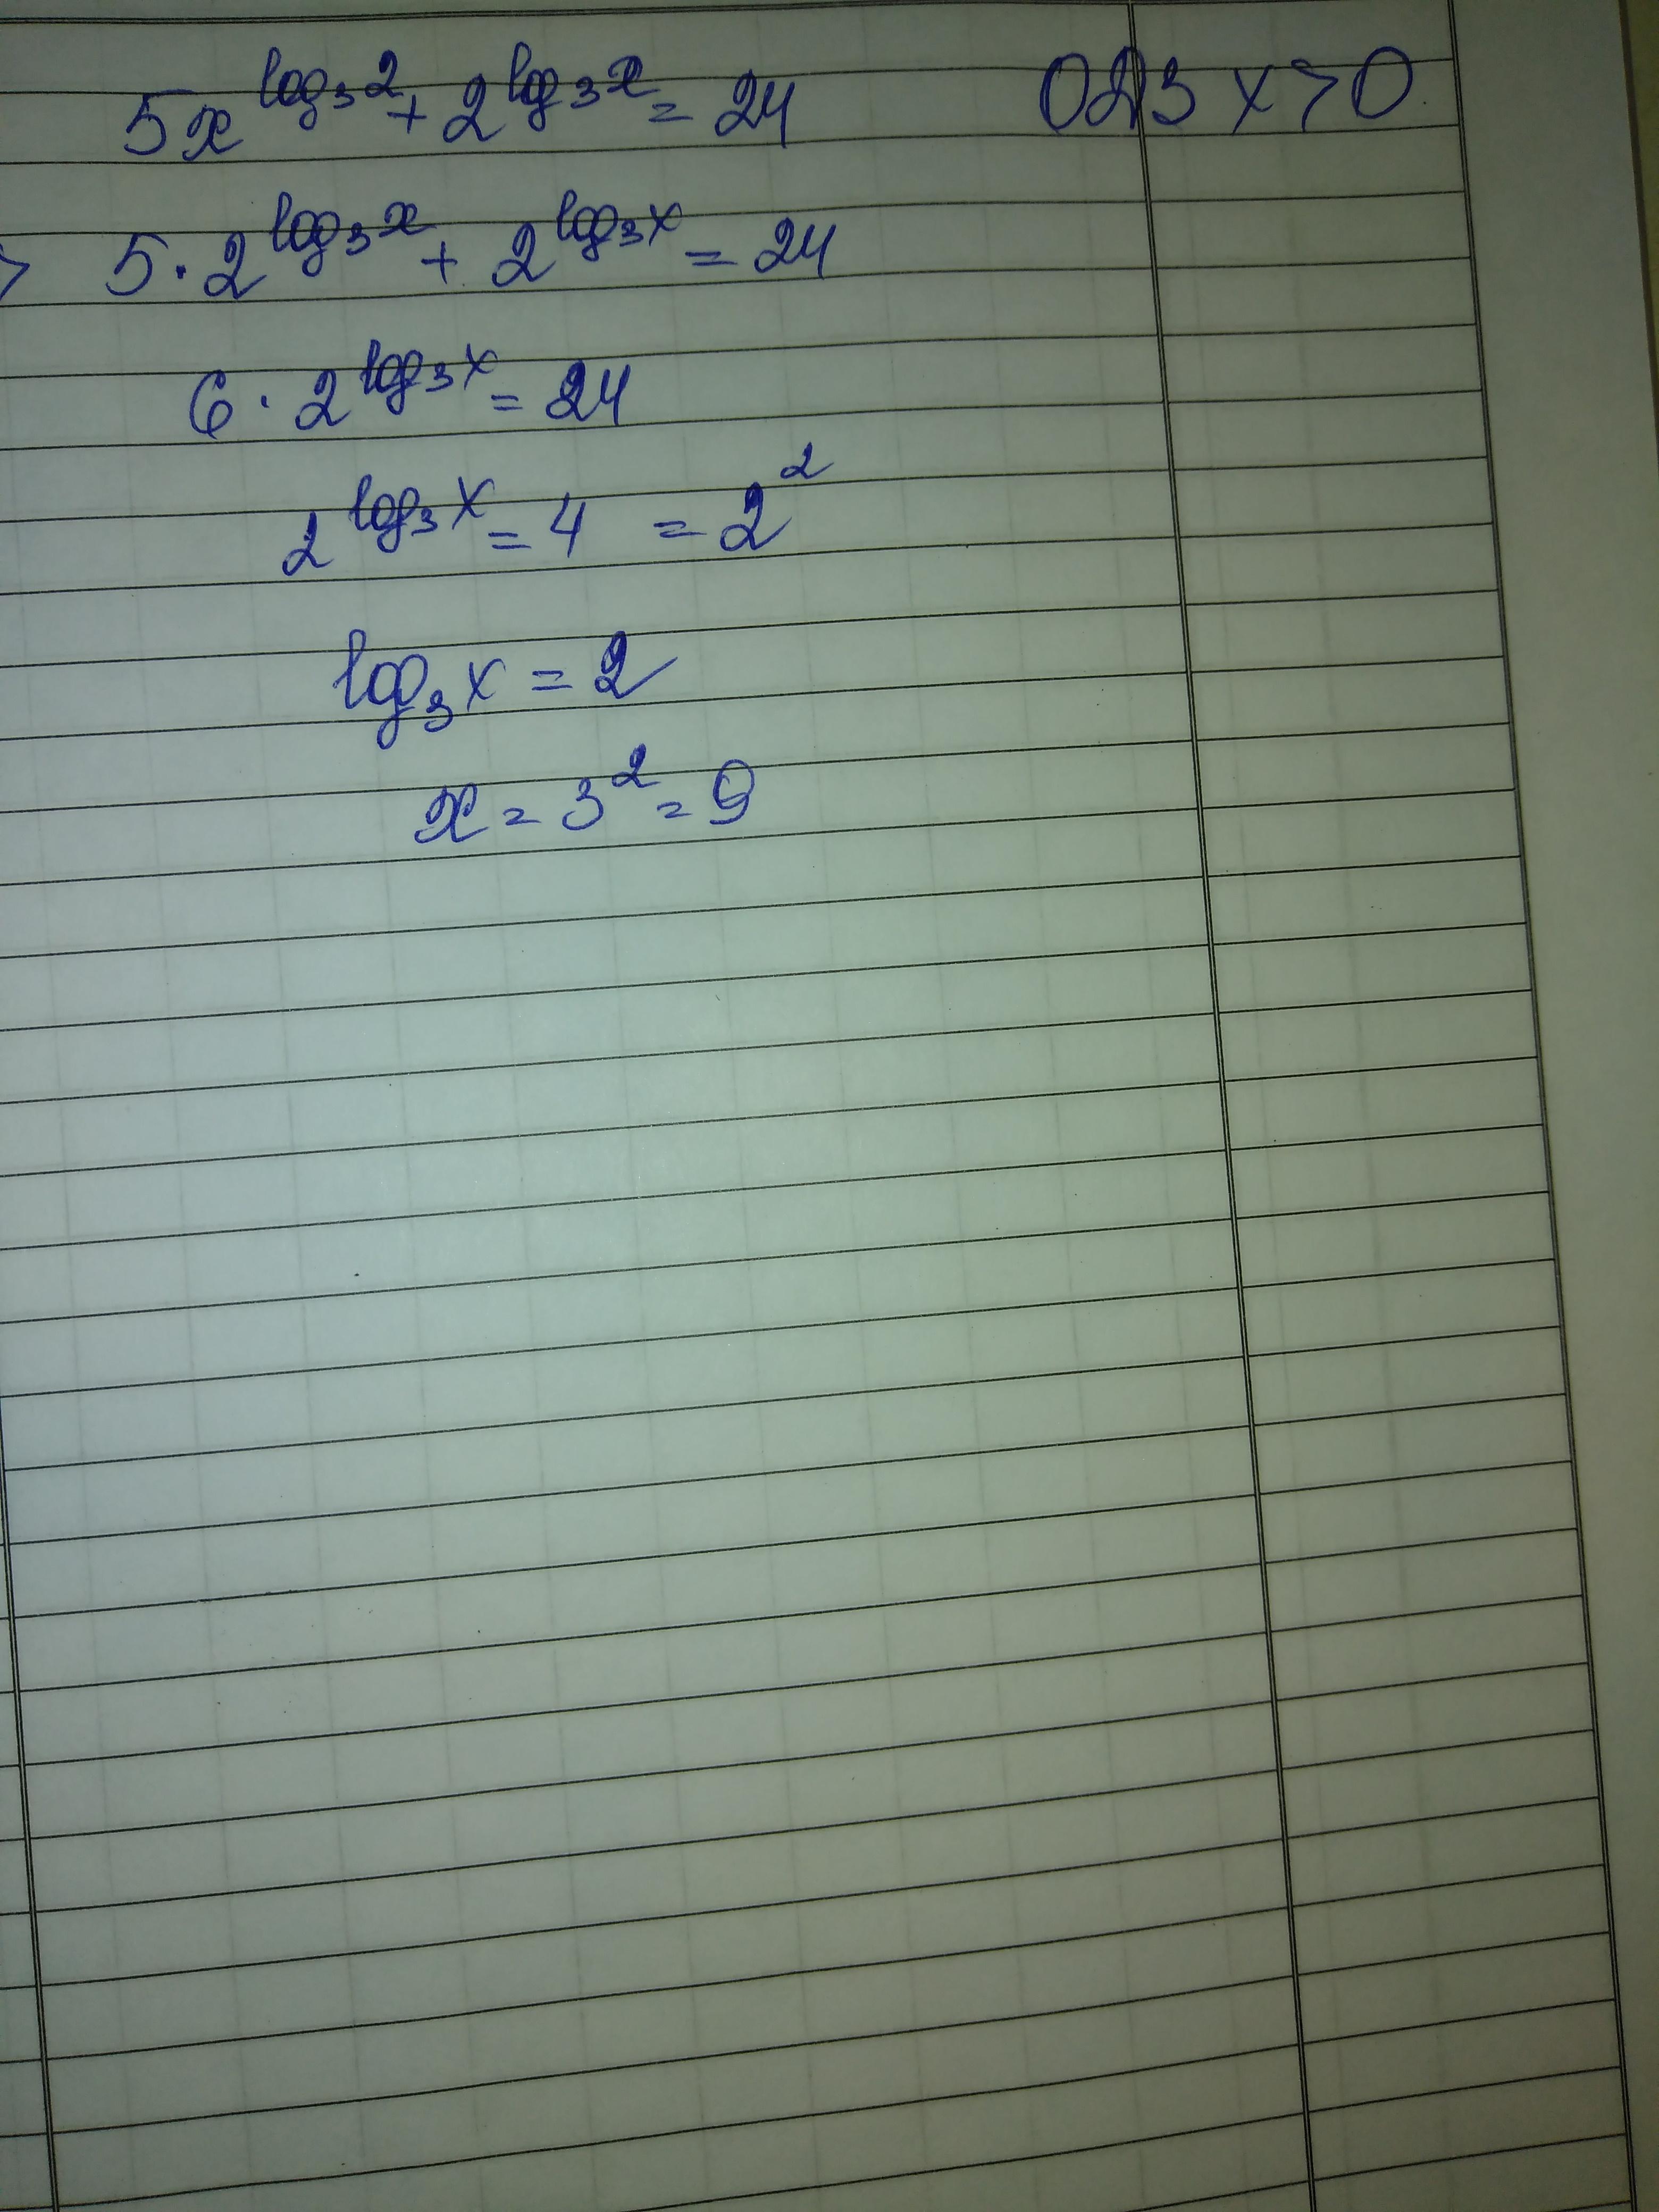 5x^{log_3 2} + 2^{log_3 x} = 24    ОДЗ x>0
> 5 · 2^{log_3 x} + 2^{log_3 x} = 24
6 · 2^{log_3 x} = 24
2^{log_3 x} = 4 = 2^2
log_3 x = 2
x = 3^2 = 9